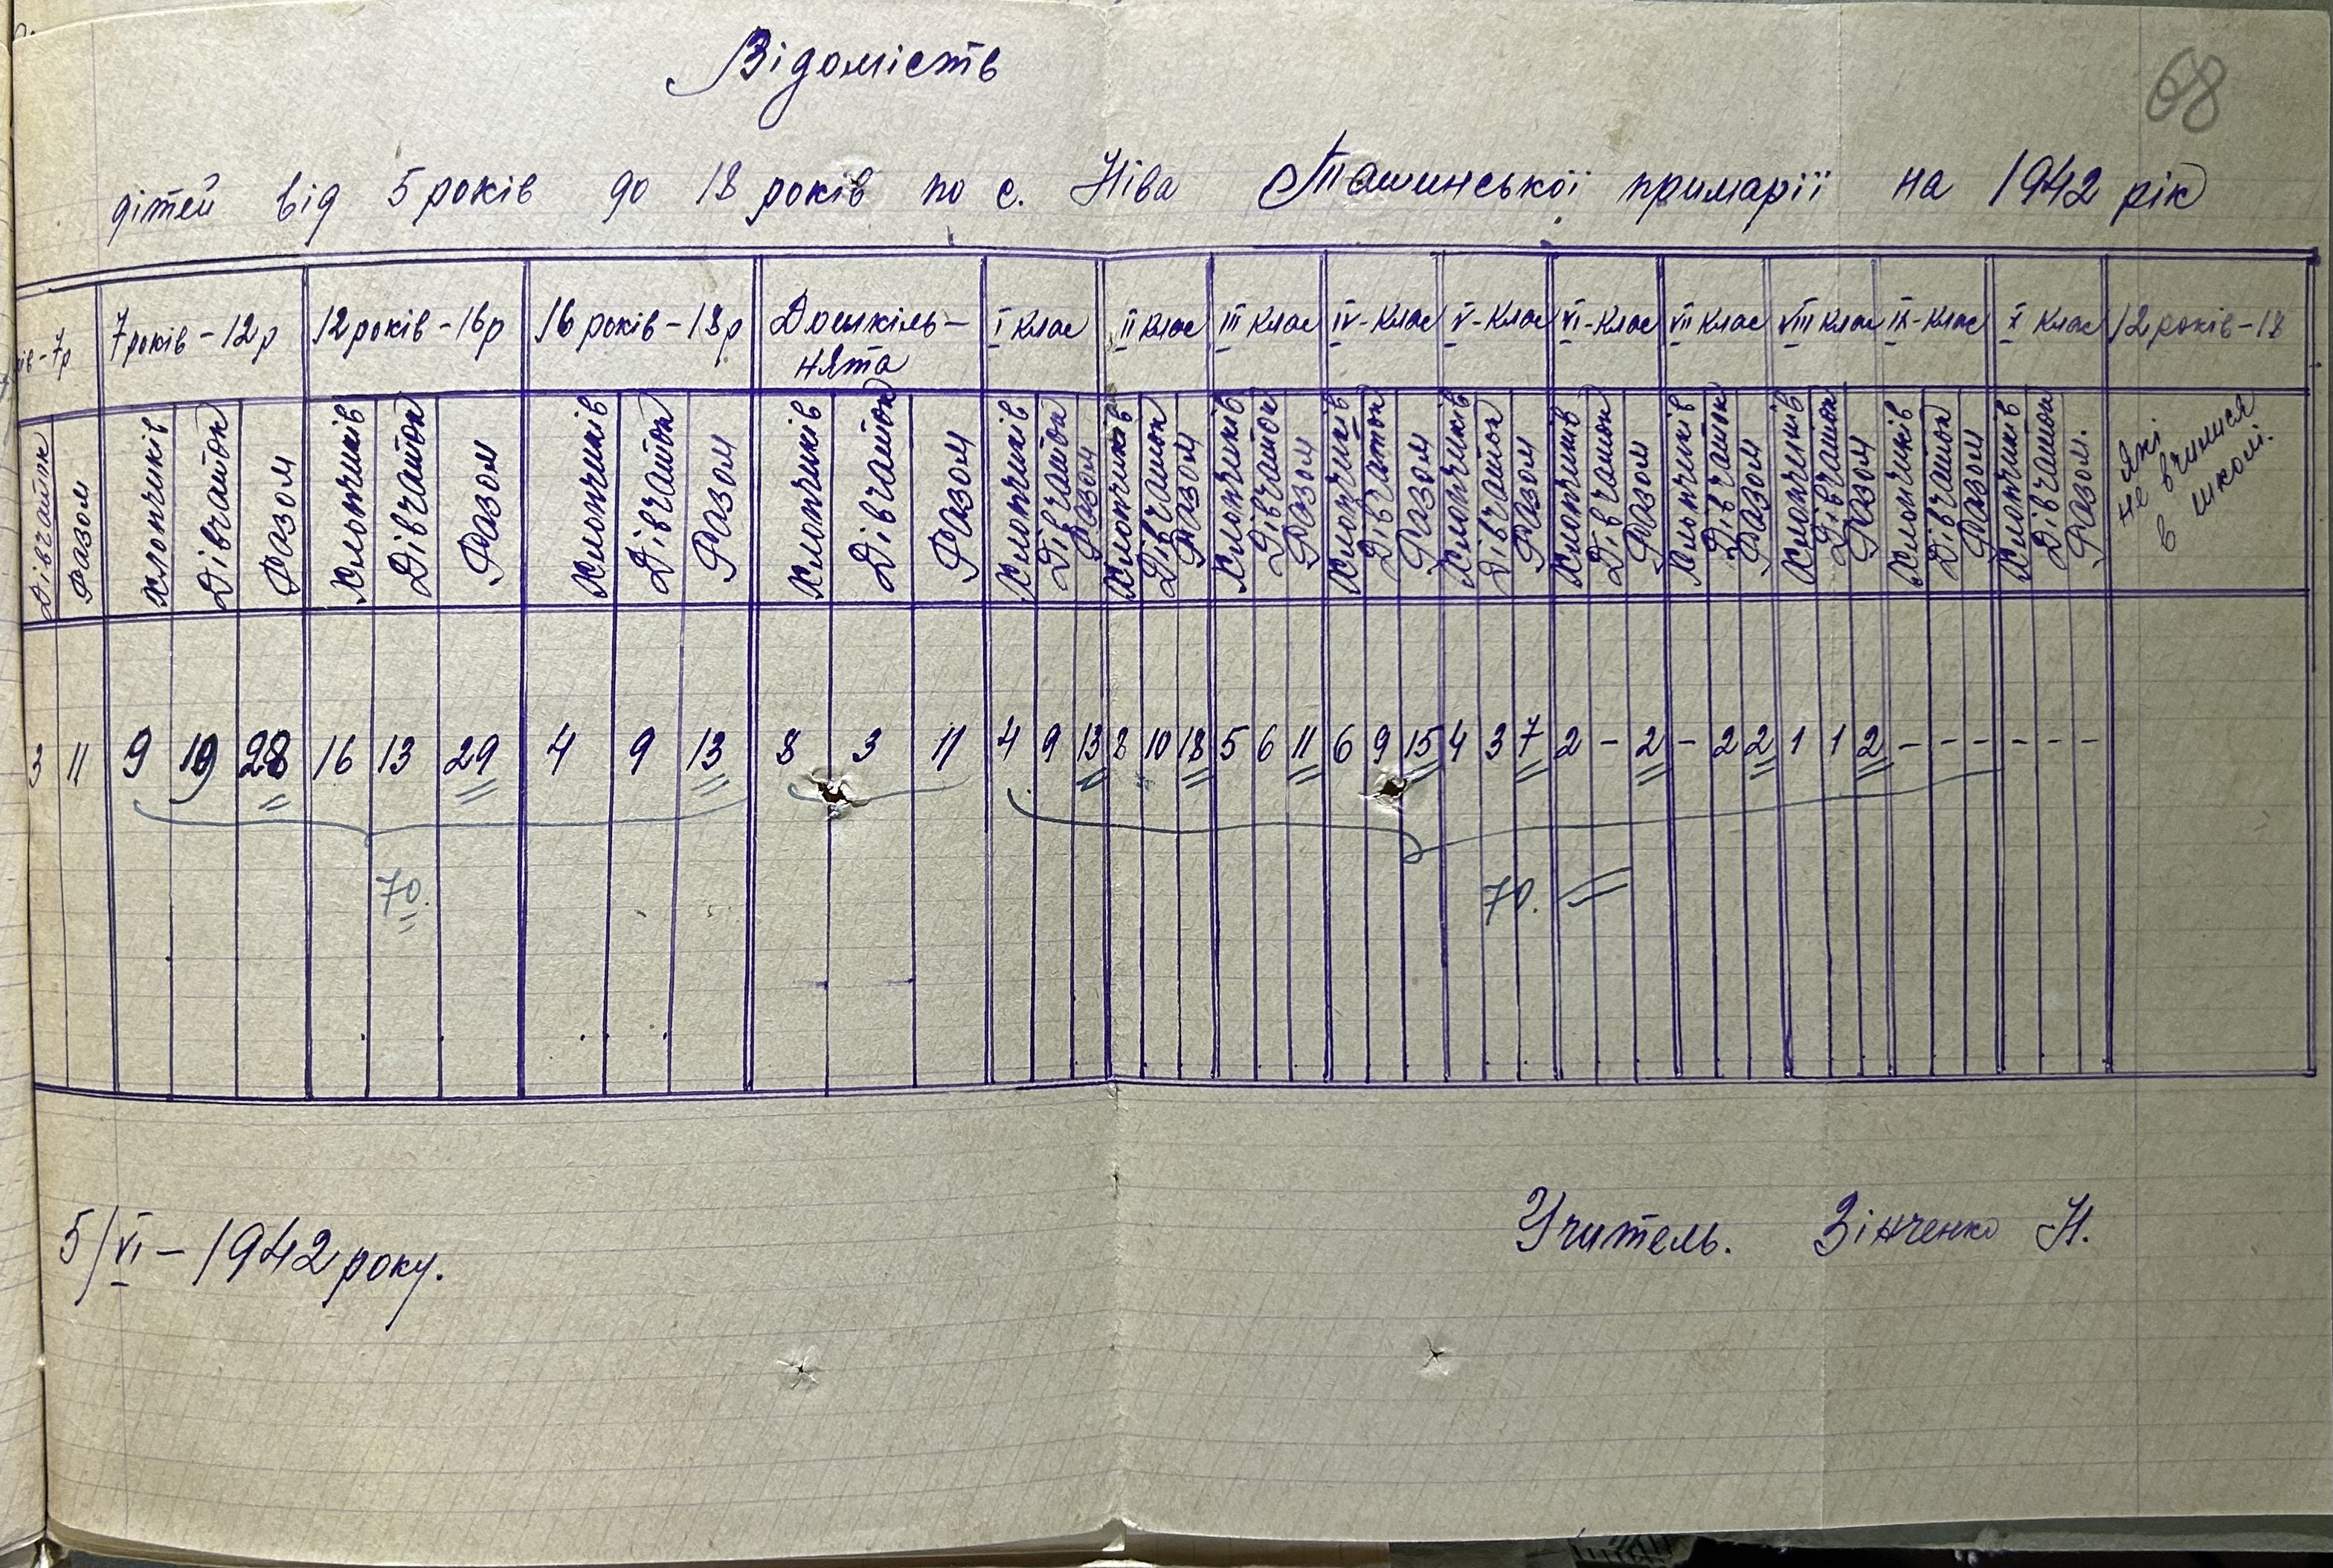 68
Відомість
дітей від 5 років до 18 років по с. Ніва Ташинської примарії на 1942 рік
ів-7р 7 років-12р 12 років-16р 16 років-18р Дошкіль-нята I клас II клас III клас IV-клас V-клас VI-клас VII клас VIII клас IX-клас X клас 12 років-18
Дівчаток Разом Хлопчиків Дівчаток Разом Хлопчиків Дівчаток Разом Хлопчиків Дівчаток Разом Хлопчиків Дівчаток Разом Хлопчиків Дівчаток Разом Хлопчиків Дівчаток Разом Хлопчиків Дівчаток Разом Хлопчиків Дівчаток Разом Хлопчиків Дівчаток Разом Хлопчиків Дівчаток Разом Хлопчиків Дівчаток Разом Хлопчиків Дівчаток Разом Хлопчиків Дівчаток Разом Хлопчиків Дівчаток Разом. які не вчилися в школі.
3 11 9 19 28 16 13 29 4 9 13 8 3 11 4 9 13 8 10 18 5 6 11 6 9 15 4 3 7 2 - 2 - 2 2 1 1 2 - - - - - -
70. 70.
5/VI-1942 року. Учитель. Зінченко Н.